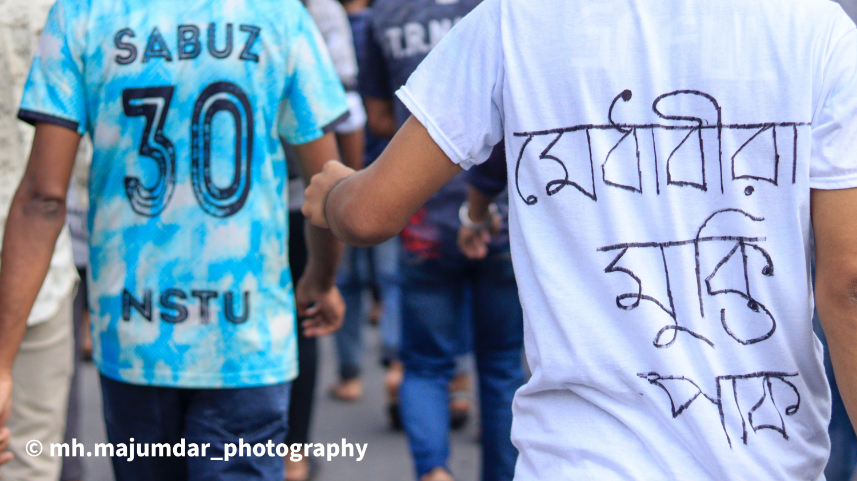 SABUZ
30
NSTU
T.R.N
মেধাবীরা
মুক্তি
পাক
© mh.majumdar_photography